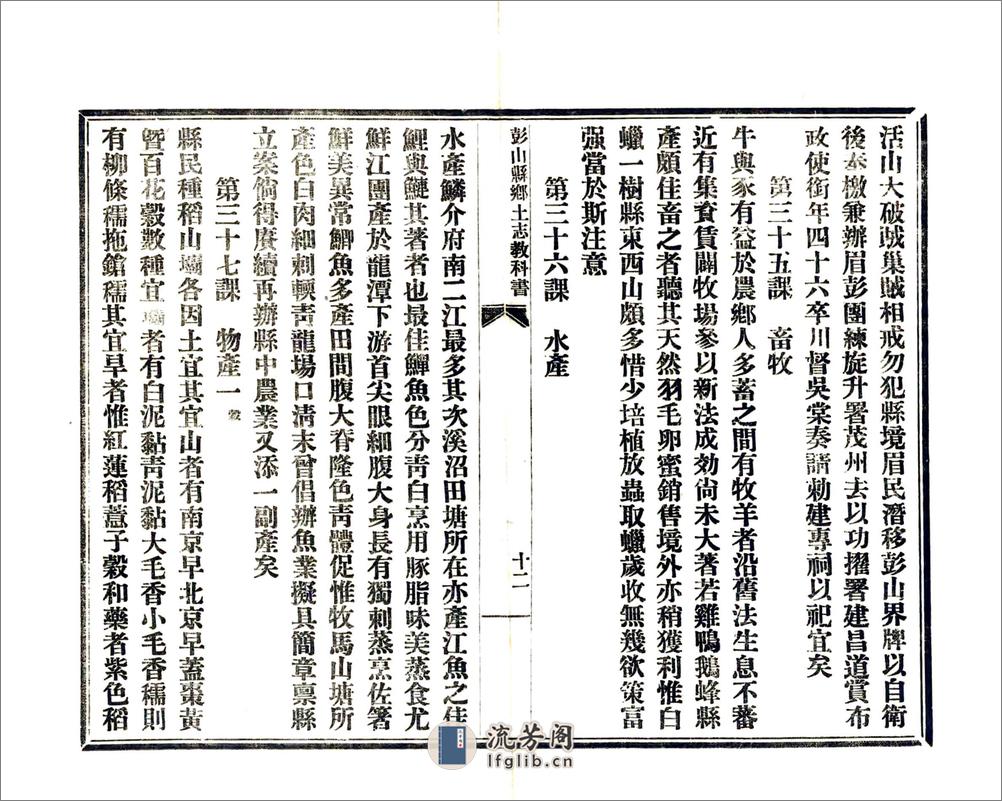 活山大破賊巢賊相戒勿犯縣境眉民潛移彭山界牌以自衛
後奉檄兼辦眉彭團練旋升署茂州去以功擢署建昌道賞布
政使銜年四十六卒川督吳棠奏請勅建專祠以祀宜矣
第三十五課　畜牧
牛與豕有益於農鄉人多蓄之間有牧羊者沿舊法生息不蕃
近有集資賃闢牧場參以新法成効尙未大著若雞鴨鵝蜂縣
產頗佳畜之者聽其天然羽毛卵蜜銷售境外亦稍獲利惟白
蠟一樹縣東西山頗多惜少培植放蟲取蠟歲收無幾欲策富
强當於斯注意
第三十六課　水產
彭山縣鄉土志教科書
十二
水產鱗介府南二江最多其次溪沼田塘所在亦產江魚之佳
鯉與鰱其著者也最佳鱓魚色分靑白烹用豚脂味美蒸食尤
鮮江團產於龍潭下游首尖眼細腹大身長有獨刺蒸烹佐箸
鮮美異常鯽魚多產田間腹大脊隆色靑體促惟牧馬山塘所
產色白肉細刺輭靑龍場口淸末曾倡辦魚業擬具簡章禀縣
立案倘得賡續再辦縣中農業又添一副產矣
第三十七課　物產一　穀
縣民種稻山壩各因土宜其宜山者有南京早北京早蓋棗黃
曁百花穀數種宜壩者有白泥黏靑泥黏大毛香小毛香糯則
有柳條糯拖鎗糯其宜旱者惟紅蓮稻薏子穀和藥者紫色稻
流芳阁
lfglib.cn